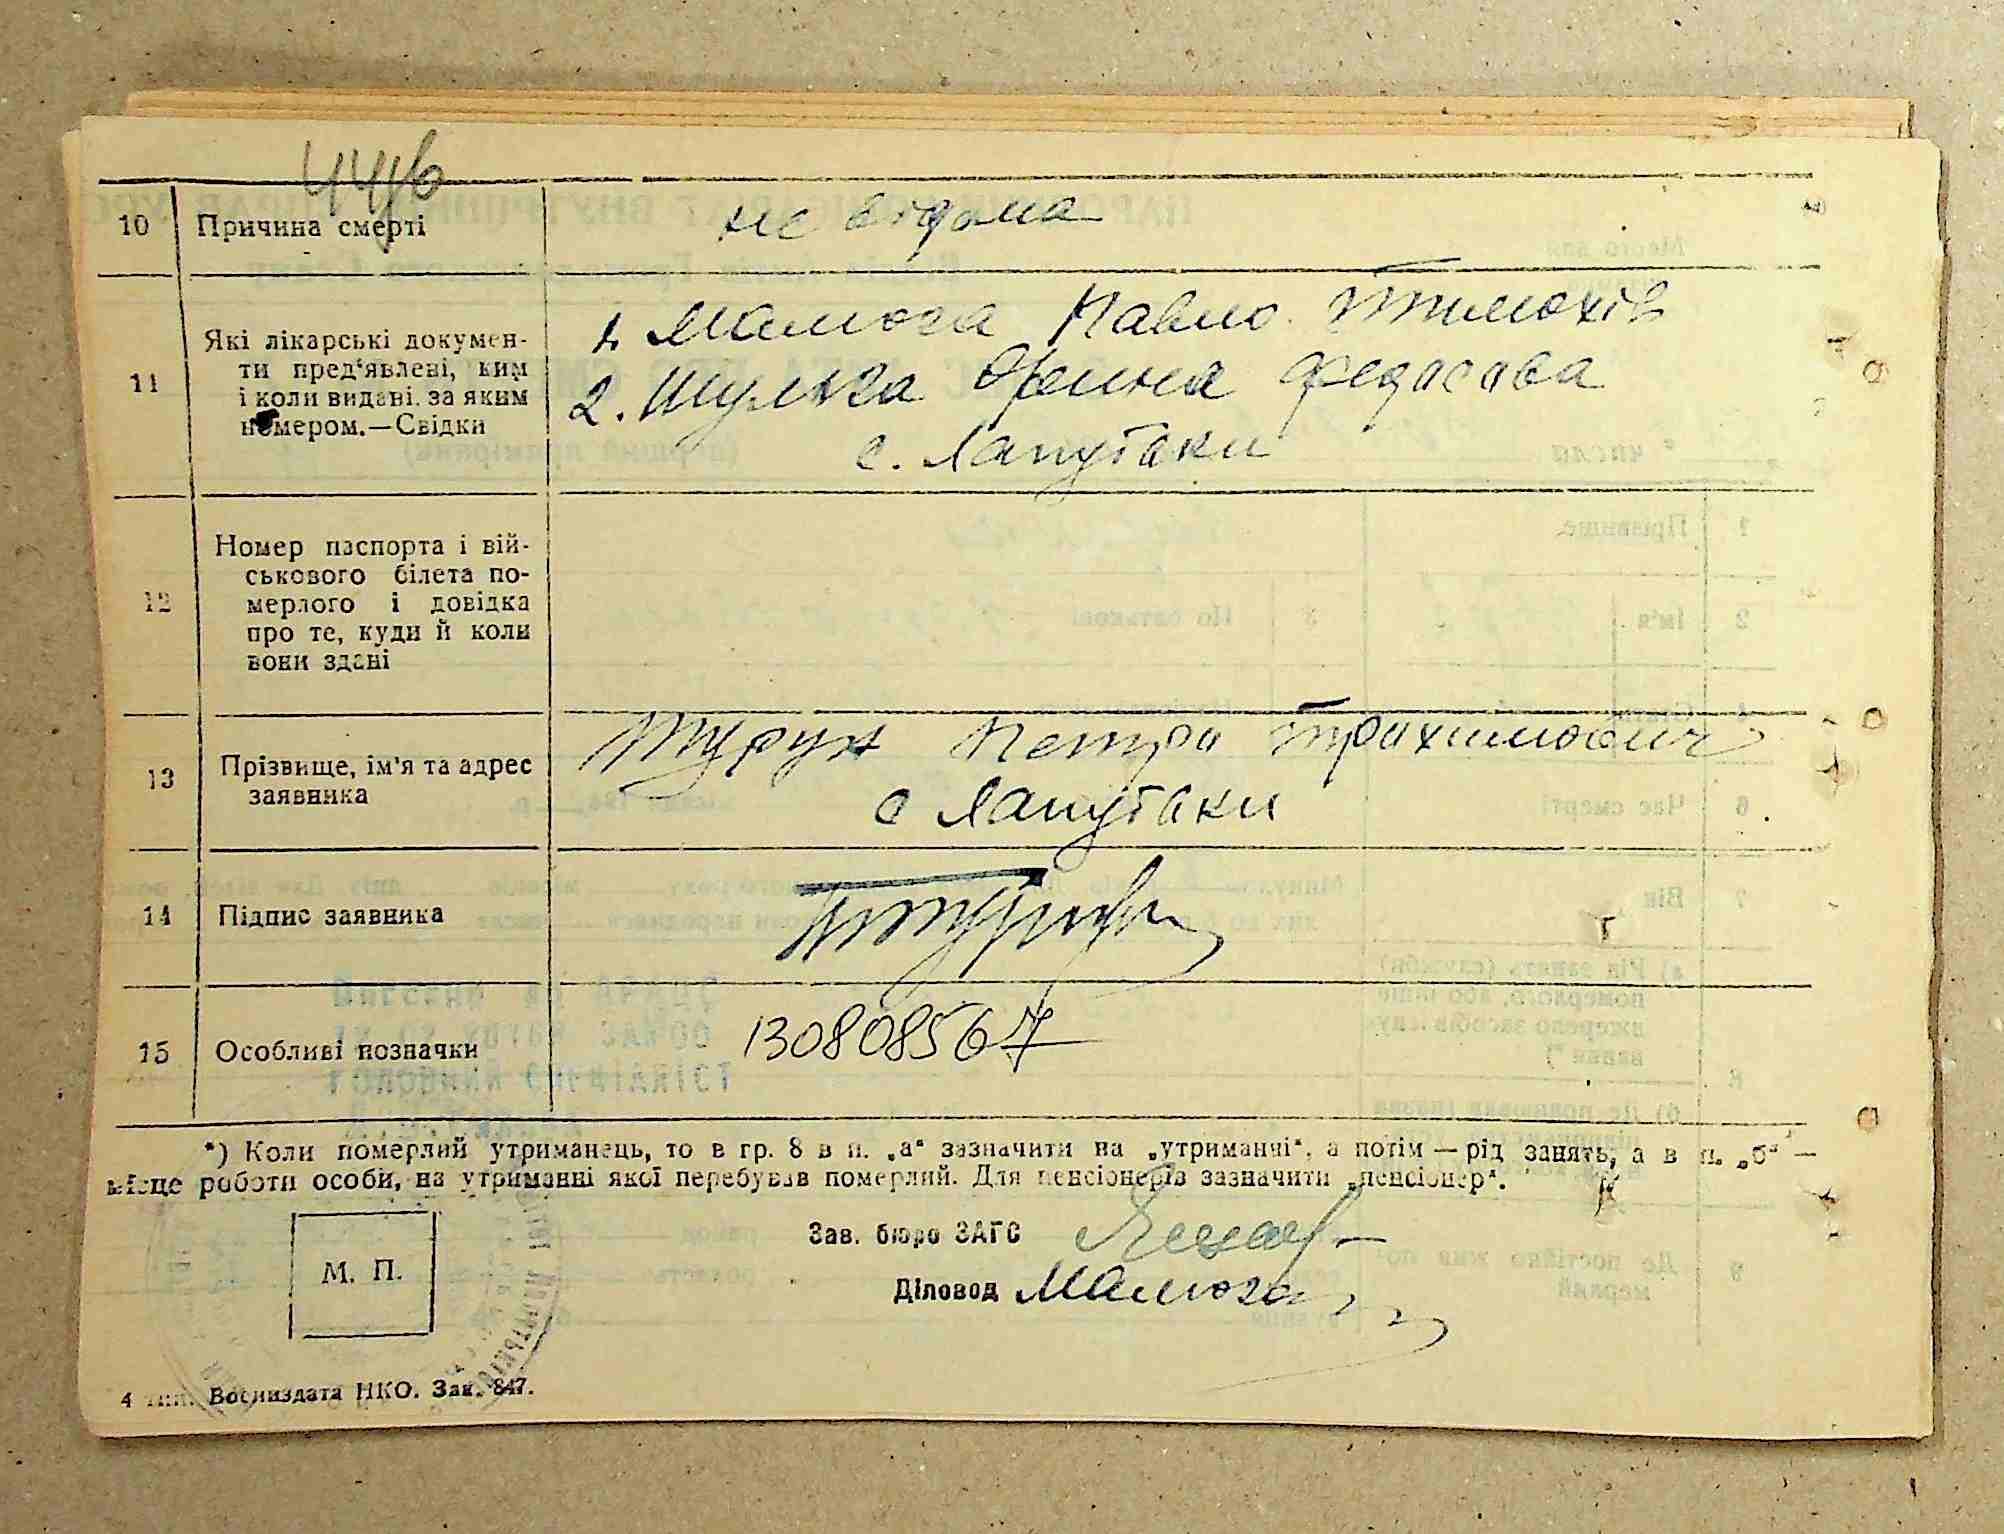 10 Причина смерті не відома
11 Які лікарські докумен-
ти пред'явлені, ким
і коли видані, за яким
номером.—Свідки
1. Малюга Павло Тимохів
2. Шульга Орина Федосова
с. Лапутьки
12 Номер паспорта і вій-
ськового білета по-
мерлого і довідка
про те, куди й коли
вони здані
13 Прізвище, ім'я та адрес
заявника
Турун Петро Трахимович
с Лапутьки
14 Підпис заявника
15 Особливі позначки 130808567
*) Коли померлий утриманець, то в гр. 8 в п. „а“ зазначити на „утриманчі“, а потім — рід занять, а в п. „б“ —
місце роботи особи, на утриманні якої перебував померлий. Для пенсіонерів зазначити „пенсіонер“.
М. П.
Зав. бюро ЗАГС
Діловод Малюга
4 тип. Воениздата НКО. Зак. 847.